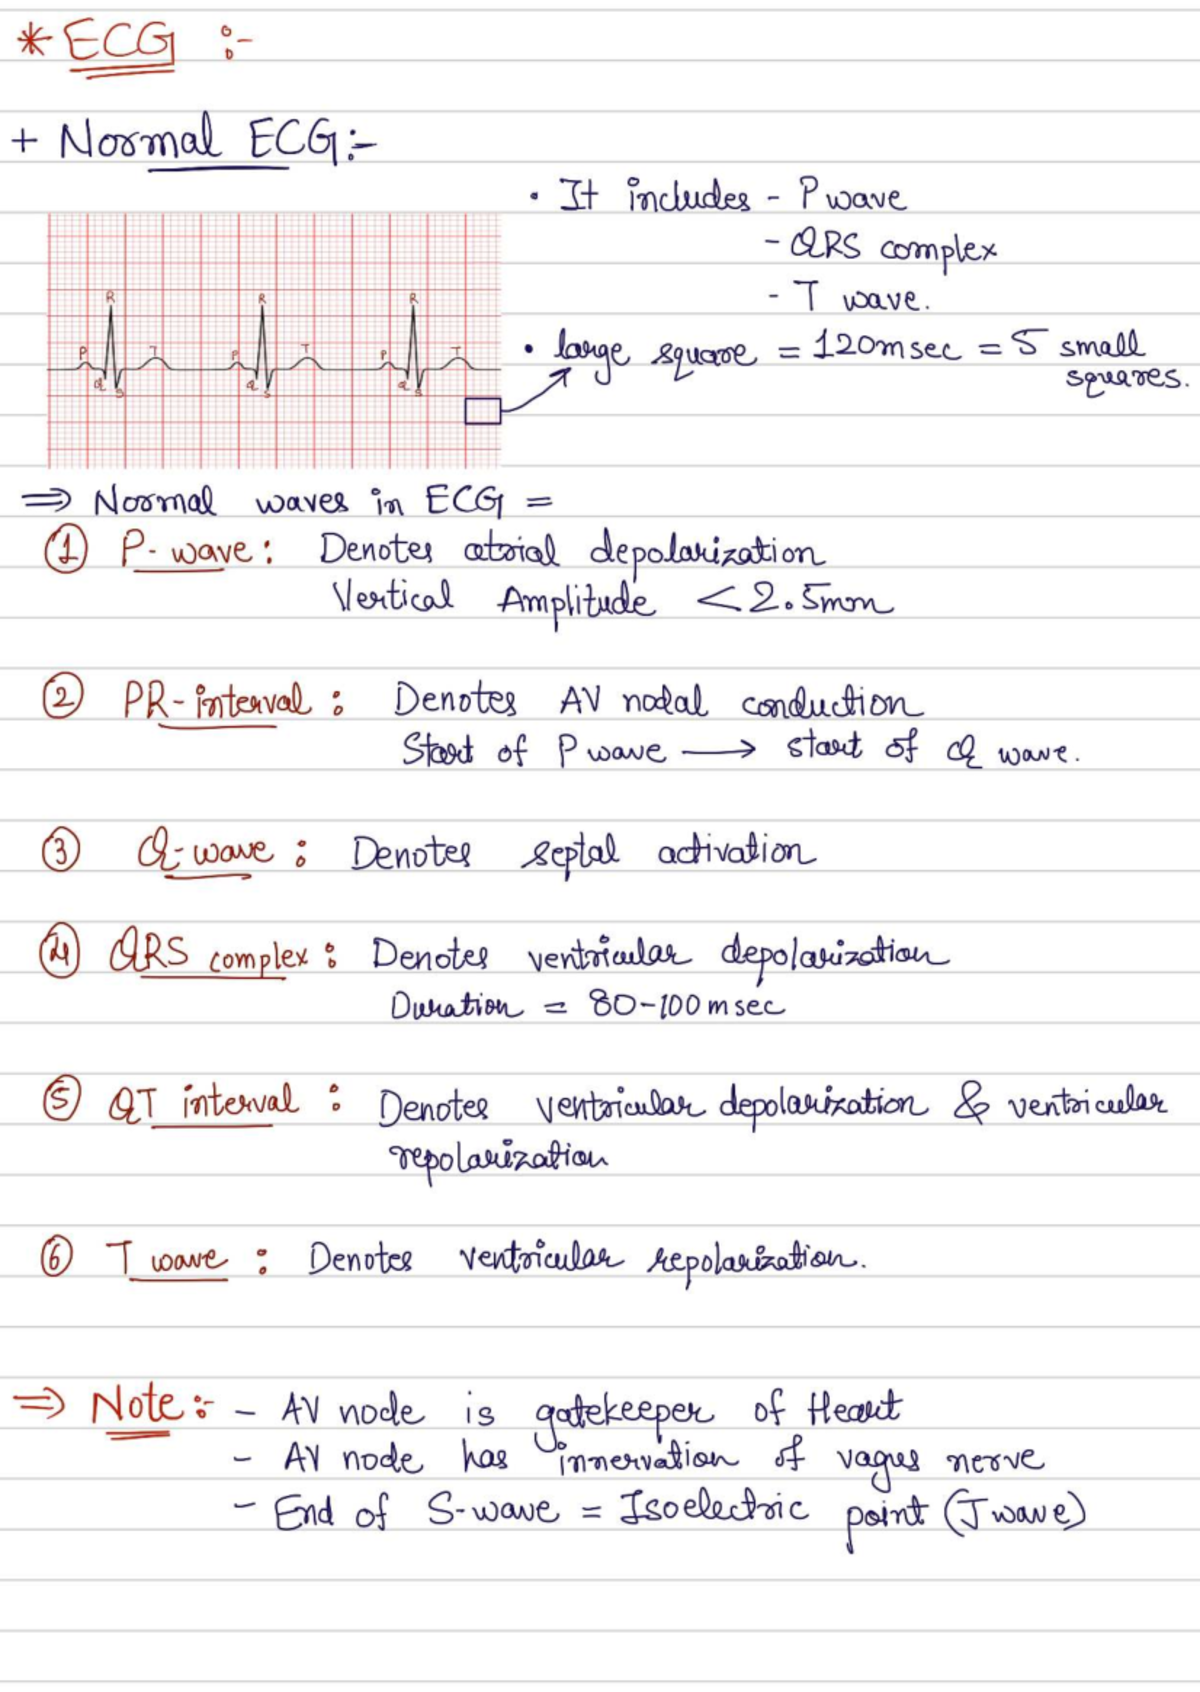 * ECG :-
+ Normal ECG:-
• It includes - P wave
- QRS complex
- T wave.
• large square = 120msec = 5 small
squares.
R R R
P T P T P T
Q S Q S Q S
⇒ Normal waves in ECG =
① P-wave: Denotes atrial depolarization
Vertical Amplitude < 2.5mm
② PR-interval: Denotes AV nodal conduction
Start of P wave → start of Q wave.
③ Q-wave: Denotes septal activation
④ QRS complex: Denotes ventricular depolarization
Duration = 80-100msec
⑤ QT interval: Denotes ventricular depolarization & ventricular
repolarization
⑥ T wave: Denotes ventricular repolarization.
⇒ Note:- - AV node is gatekeeper of Heart
- AV node has innervation of vagus nerve
- End of S-wave = Isoelectric point (J wave)